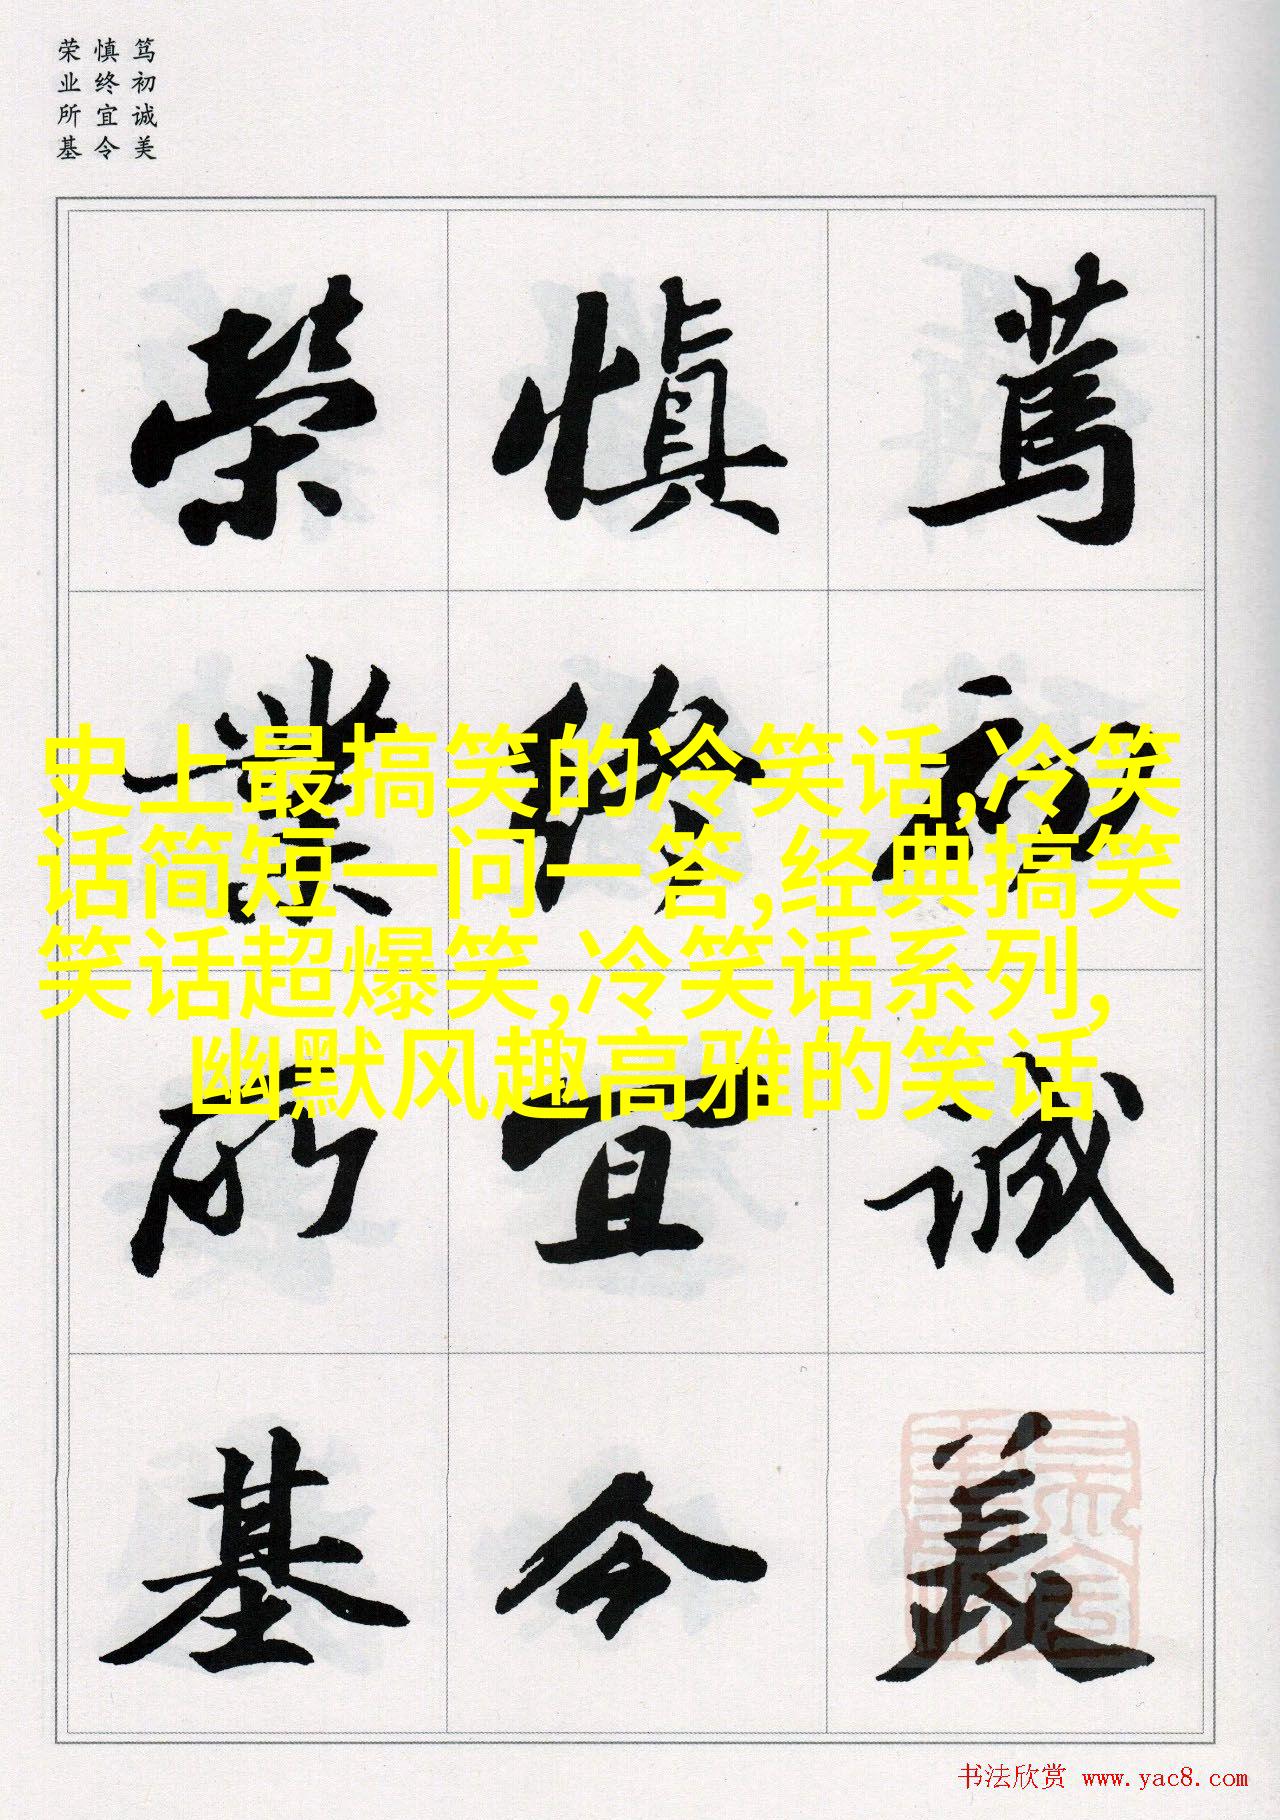 笃初诚美
慎终宜令
荣业所基
篤初誠美
慎終宜令
榮業所基
史上最搞笑的冷笑话,冷笑
话简短一问一答,经典搞笑
笑话超爆笑,冷笑话系列,
幽默风趣高雅的笑话
书法欣赏 www.yac8.com